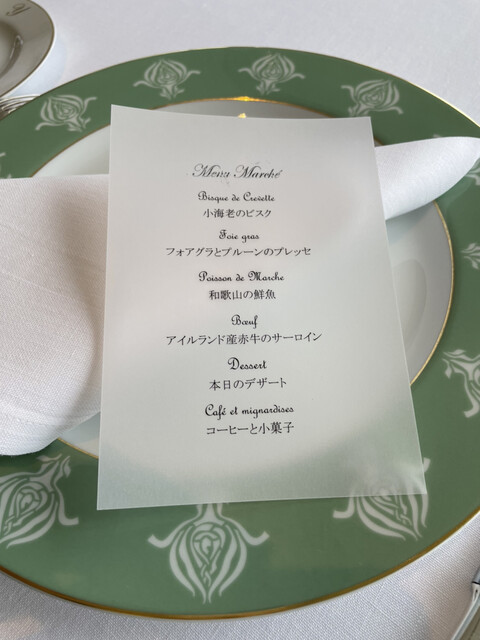 Menu Marché
Bisque de Crevette
小海老のビスク
Foie gras
フォアグラとプルーンのプレッセ
Poisson de Marche
和歌山の鮮魚
Bœuf
アイルランド産赤牛のサーロイン
Dessert
本日のデザート
Café et mignardises
コーヒーと小菓子